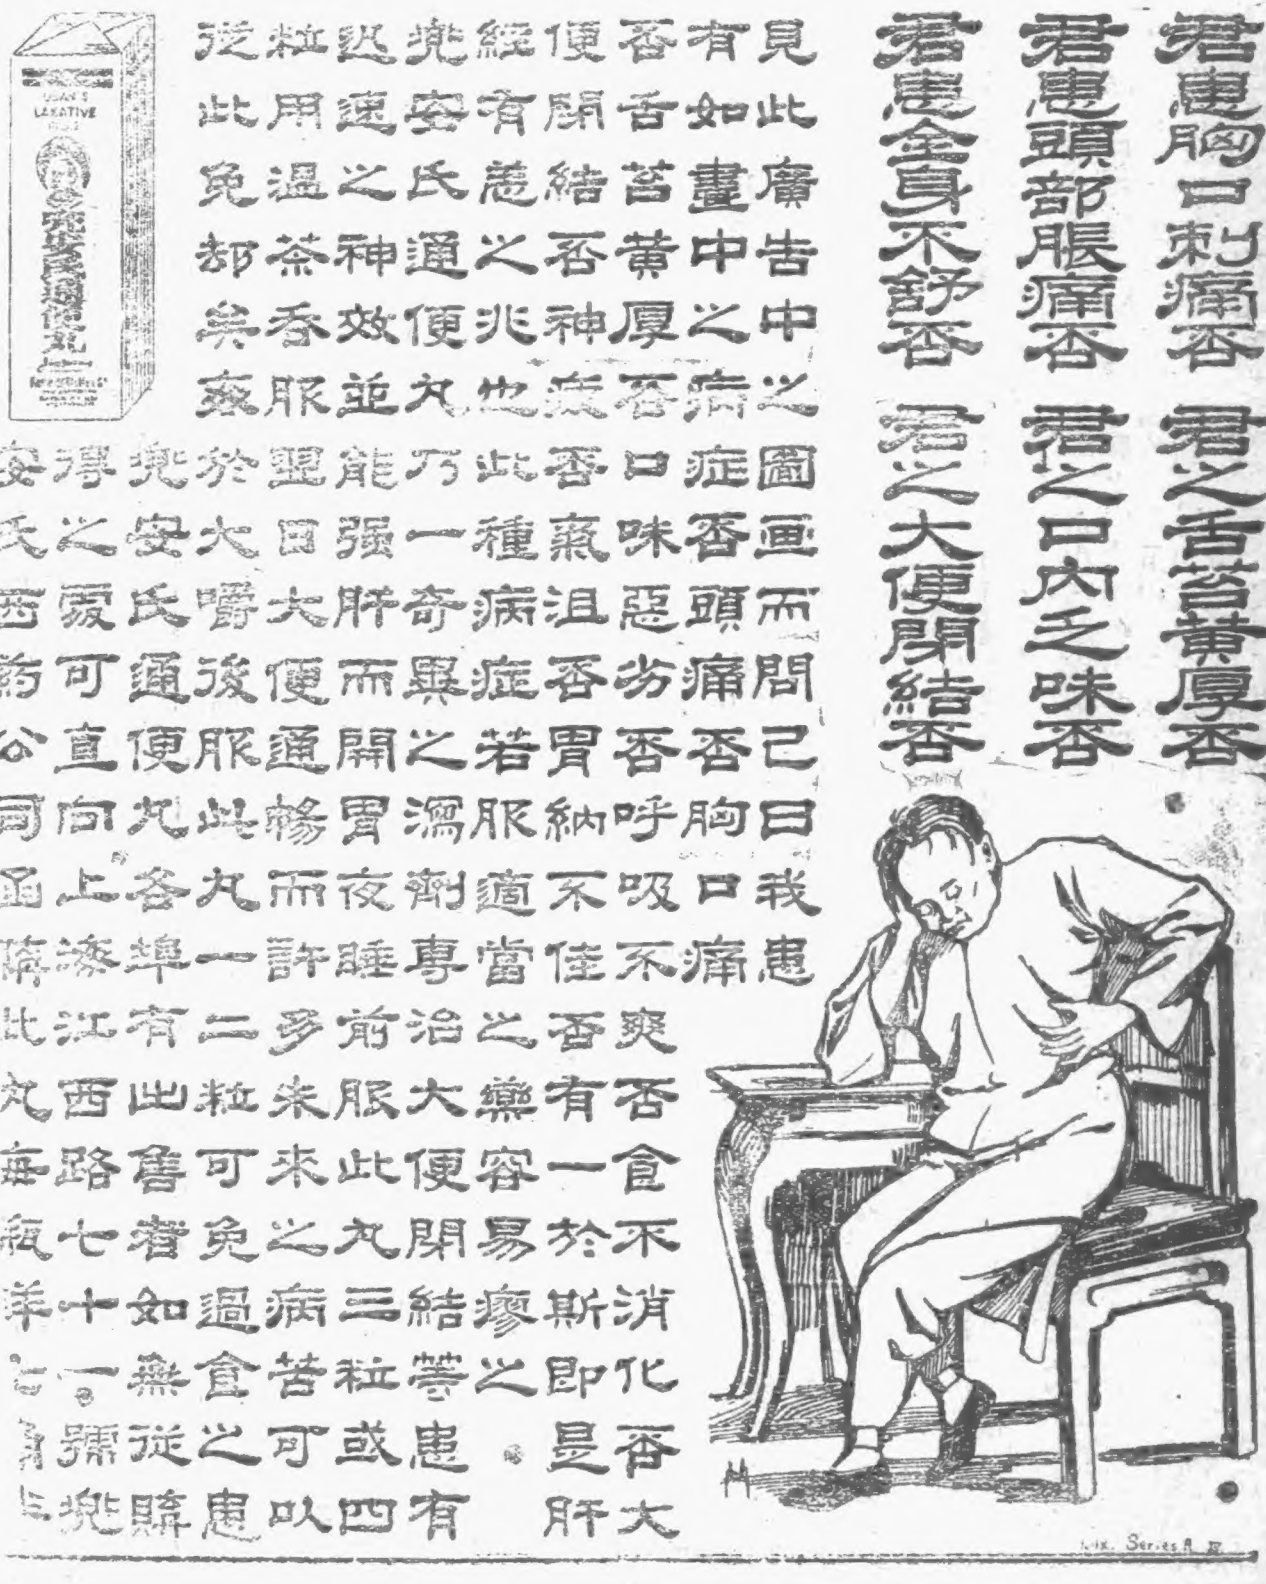 君患胸口刺痛否 君之舌苔黄厚否
君患頭部脹痛否 君之口內乏味否
君患全身不舒否 君之大便閉結否
見此廣告中之圖画而問己曰我患
有如畫中之病症否頭痛否胸口痛
否舌苔黄厚否口味惡劣否呼吸不爽否食不消化否大
便閉結否神疲否氣沮否胃納不佳否有一於斯即是肝
經有恙之兆也此種病症若服適當之藥容易瘳之
兜安氏通便丸乃一奇異之瀉劑專治大便閉結等患有
迅速之神效並能强肝而開胃夜睡前服此丸三粒或四
粒用温茶吞服翌日大便通暢而許多未來之病苦可以
從此免却矣宴於大嚼後服此丸一二粒可免過食之患
兜安氏通便丸各埠有出售者如無從購
得之處可直向上海江西路七十一號兜
安氏西药公司函購此丸每瓶洋
LAXATIVE
Series A